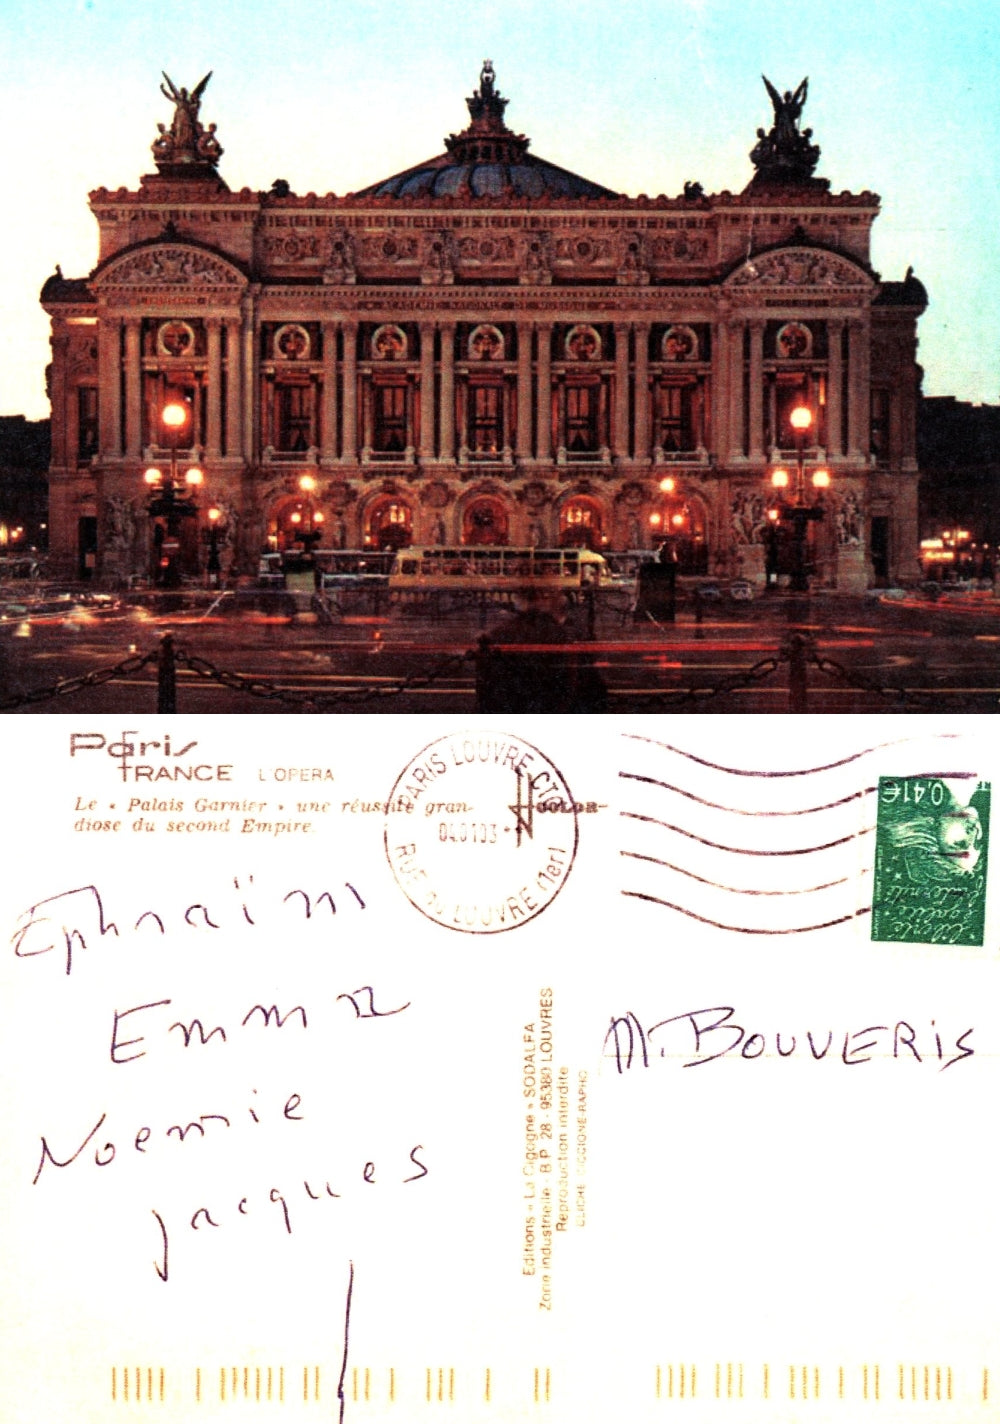 ACADEMIE NATIONALE DE MUSIQUE
Paris
FRANCE L'OPERA
Le « Palais Garnier » une réussite gran-
diose du second Empire.
PARIS LOUVRE CTC
RUE DU LOUVRE (1er)
0,41€
Liberté
Égalité
Fraternité
Ephraïm
Emma
Noemie
Jacques
M. BOUVERIS
Editions « La Cigogne » SODALFA
Zone industrielle - B.P. 28 - 95380 LOUVRES
Reproduction interdite
CLICHE CICCIONE-RAPHO